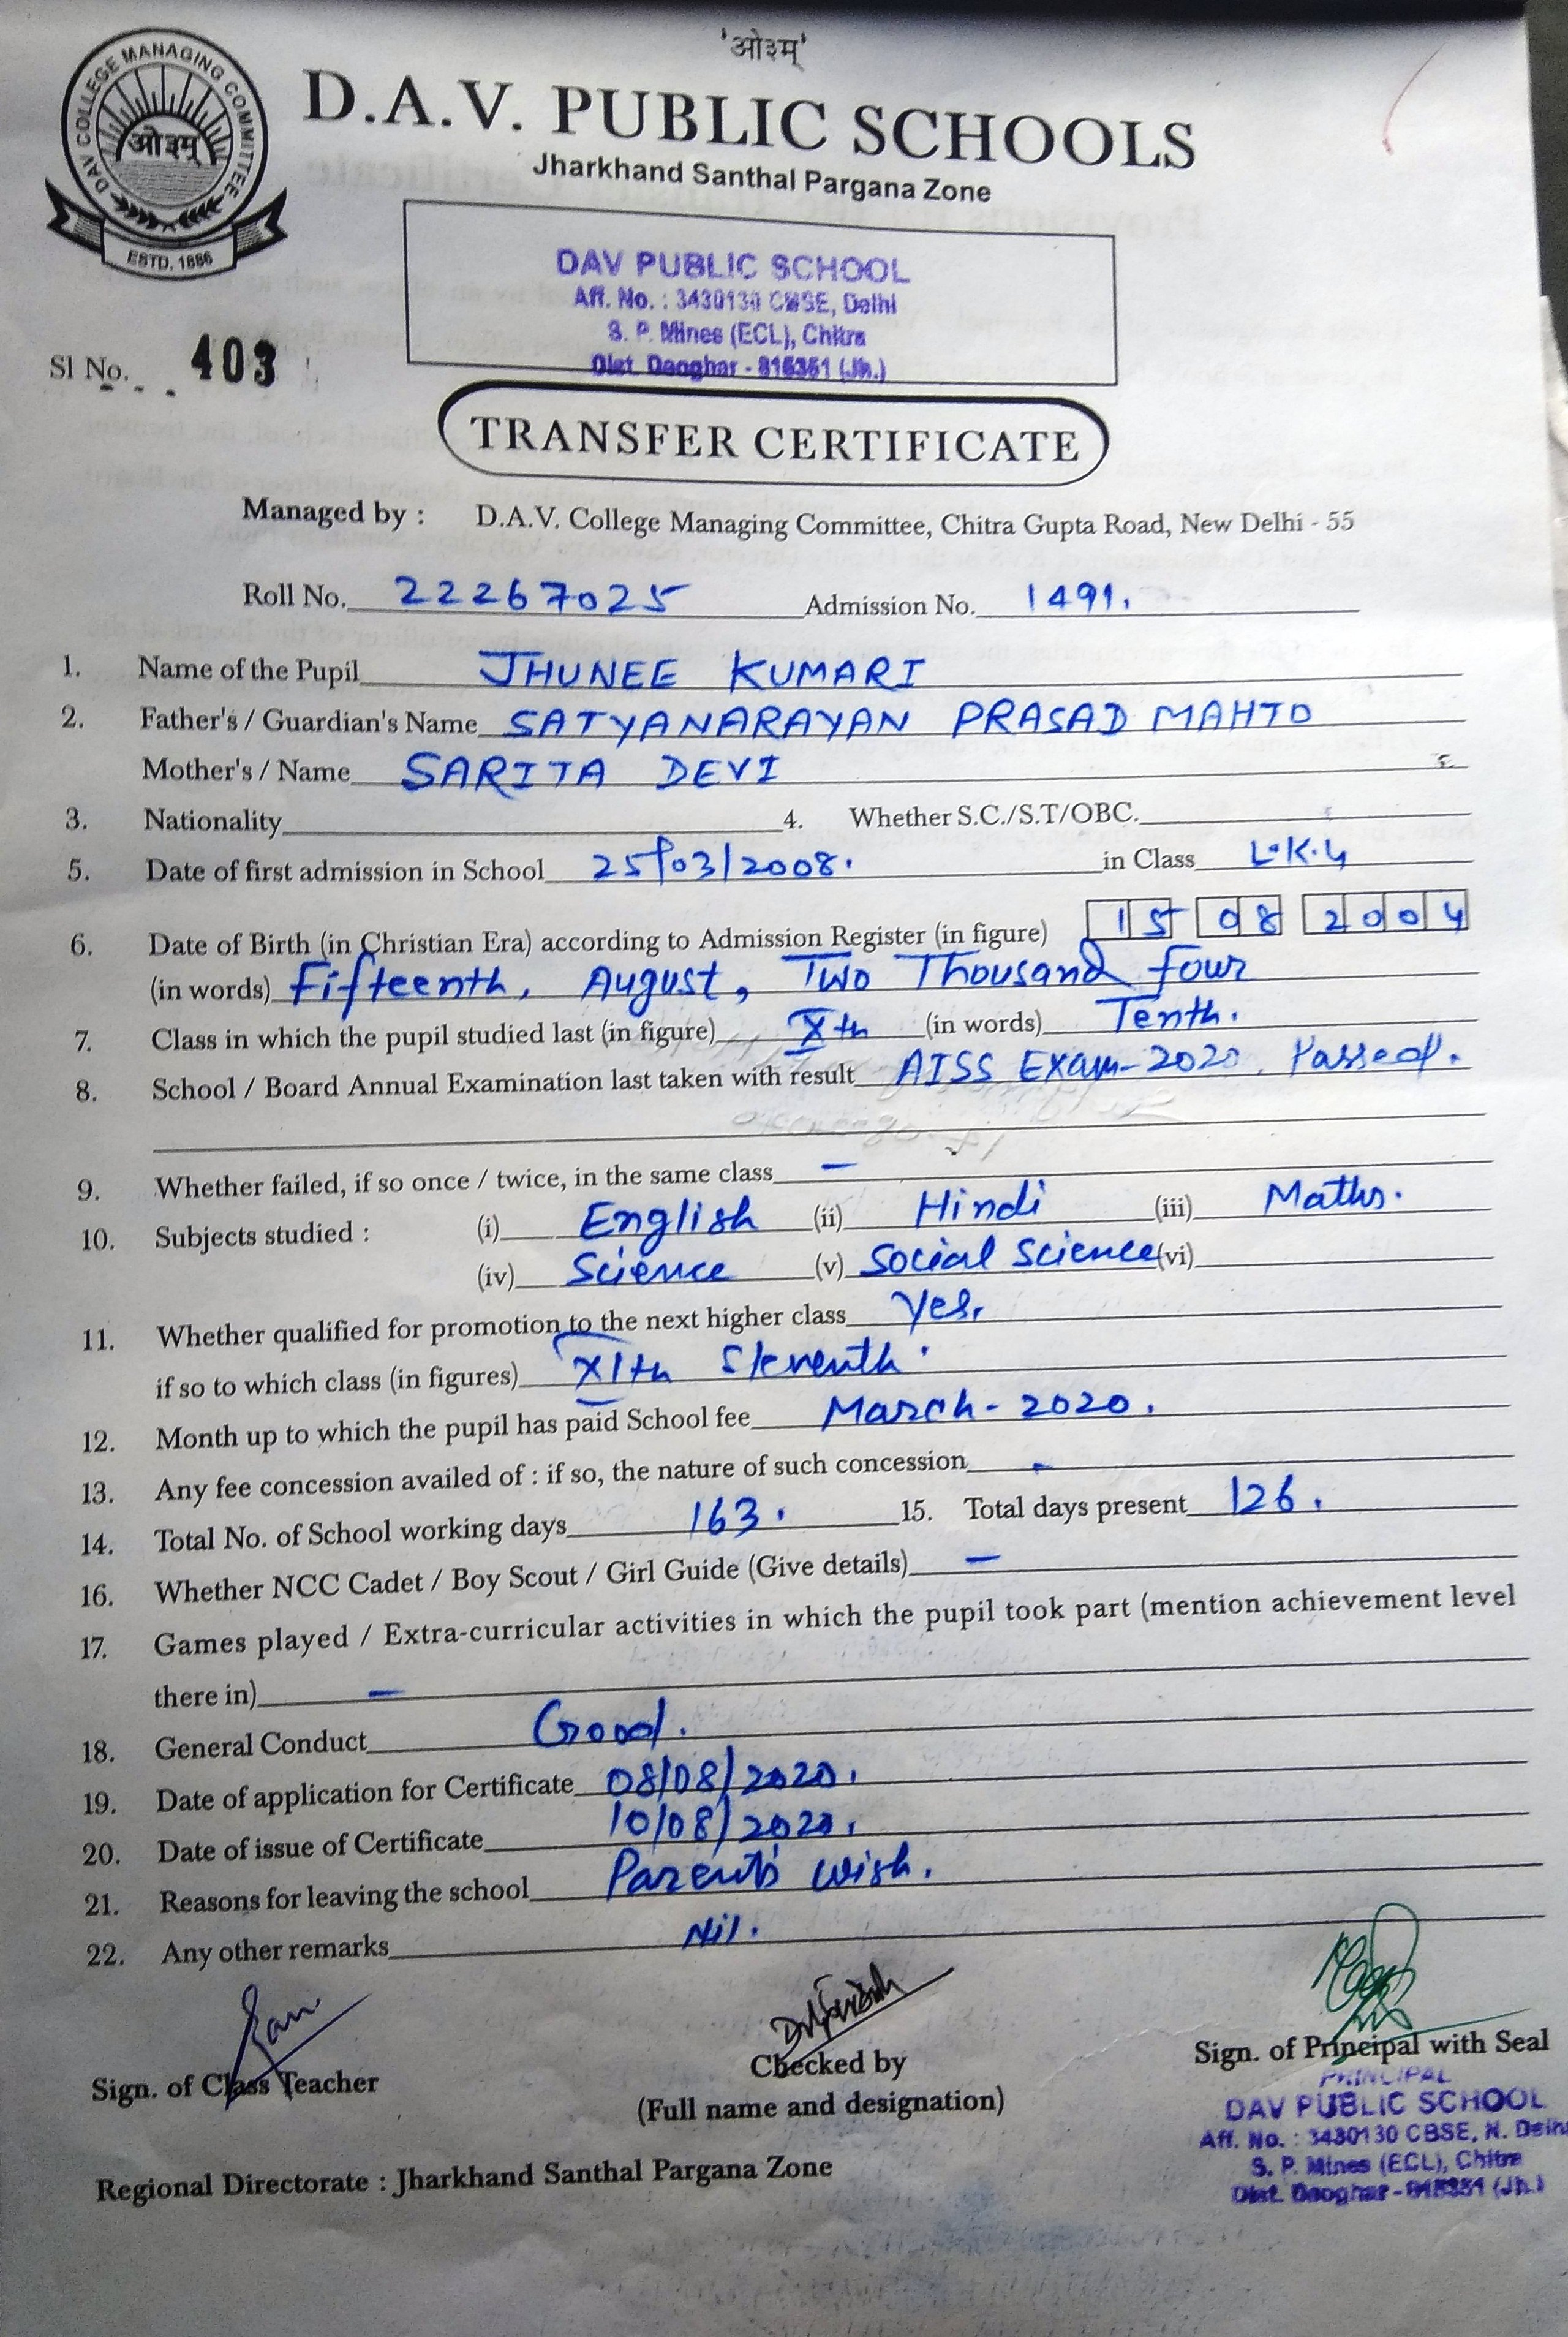 'ओ३म्'
DAV COLLEGE MANAGING COMMITTEE
ओ३म्
ESTD. 1886
D.A.V. PUBLIC SCHOOLS
Jharkhand Santhal Pargana Zone
DAV PUBLIC SCHOOL
Aff. No. : 3430130 CBSE, Delhi
S. P. Mines (ECL), Chitra
Dist. Deoghar - 815351 (Jh.)
Sl No. 403
TRANSFER CERTIFICATE
Managed by : D.A.V. College Managing Committee, Chitra Gupta Road, New Delhi - 55
Roll No. 22267025 Admission No. 1491.
1. Name of the Pupil JHUNEE KUMARI
2. Father's / Guardian's Name SATYANARAYAN PRASAD MAHTO
Mother's / Name SARITA DEVI
3. Nationality 4. Whether S.C./S.T/OBC.
5. Date of first admission in School 25/03/2008. in Class L.K.G
6. Date of Birth (in Christian Era) according to Admission Register (in figure) 15 08 2004
(in words) Fifteenth, August, Two Thousand four
7. Class in which the pupil studied last (in figure) Xth (in words) Tenth.
8. School / Board Annual Examination last taken with result AISS Exam-2020. Passed.
9. Whether failed, if so once / twice, in the same class –
10. Subjects studied : (i) English (ii) Hindi (iii) Maths.
(iv) Science (v) Social Science (vi)
11. Whether qualified for promotion to the next higher class Yes.
if so to which class (in figures) XIth Eleventh.
12. Month up to which the pupil has paid School fee March-2020.
13. Any fee concession availed of : if so, the nature of such concession –
14. Total No. of School working days 163. 15. Total days present 126.
16. Whether NCC Cadet / Boy Scout / Girl Guide (Give details) –
17. Games played / Extra-curricular activities in which the pupil took part (mention achievement level
there in) –
18. General Conduct Good.
19. Date of application for Certificate 08/08/2020.
20. Date of issue of Certificate 10/08/2020.
21. Reasons for leaving the school Parent's wish.
22. Any other remarks Nil.
Sign. of Class Teacher
Checked by
(Full name and designation)
Sign. of Principal with Seal
PRINCIPAL
DAV PUBLIC SCHOOL
Aff. No. : 3430130 CBSE, N. Delhi
S. P. Mines (ECL), Chitra
Dist. Deoghar - 815351 (Jh.)
Regional Directorate : Jharkhand Santhal Pargana Zone